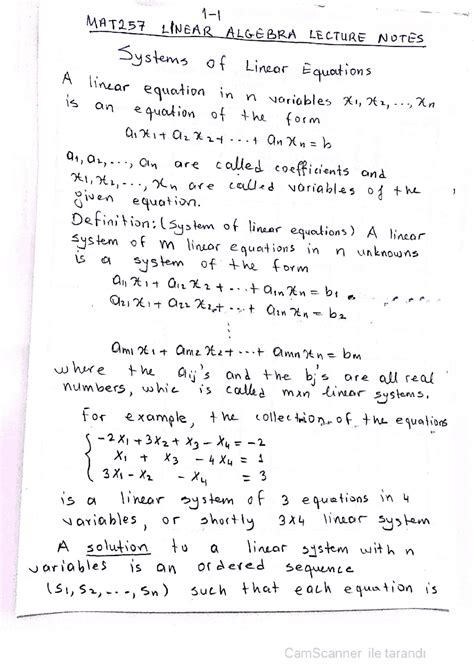 1-1
MAT257 LINEAR ALGEBRA LECTURE NOTES
Systems of Linear Equations
A linear equation in n variables x₁, x₂, ..., xₙ
is an equation of the form
a₁x₁ + a₂x₂ + ... + aₙxₙ = b
a₁, a₂, ..., aₙ are called coefficients and
x₁, x₂, ..., xₙ are called variables of the
given equation.
Definition: (System of linear equations) A linear
system of m linear equations in n unknowns
is a system of the form
a₁₁x₁ + a₁₂x₂ + ... + a₁ₙxₙ = b₁
a₂₁x₁ + a₂₂x₂ + ... + a₂ₙxₙ = b₂
⋮
aₘ₁x₁ + aₘ₂x₂ + ... + aₘₙxₙ = bₘ
where the aᵢⱼ's and the bⱼ's are all real
numbers, whic is called mxn linear systems.
For example, the collection of the equations
-2x₁ + 3x₂ + x₃ - x₄ = -2
x₁ + x₃ - 4x₄ = 1
3x₁ - x₂ - x₄ = 3
is a linear system of 3 equations in 4
variables, or shortly 3x4 linear system
A solution to a linear system with n
variables is an ordered sequence
(s₁, s₂, ..., sₙ) such that each equation is
CamScanner ile tarandı